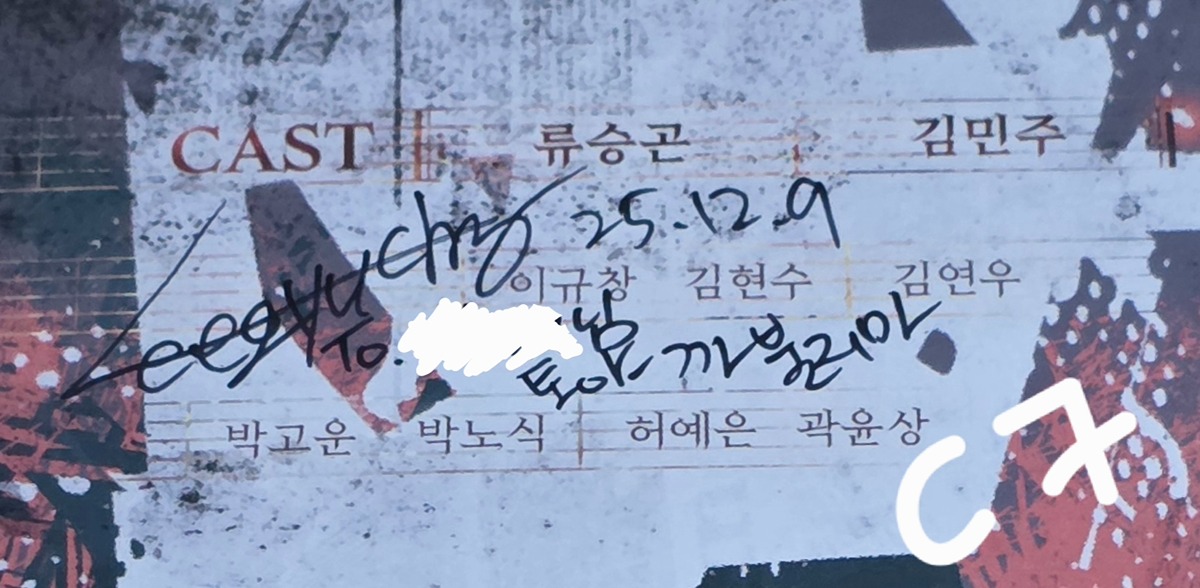 CAST 류승곤 김민주
25.12.9
이규창 김현수 김연우
To.
박고운 박노식 허예은 곽윤상
C7